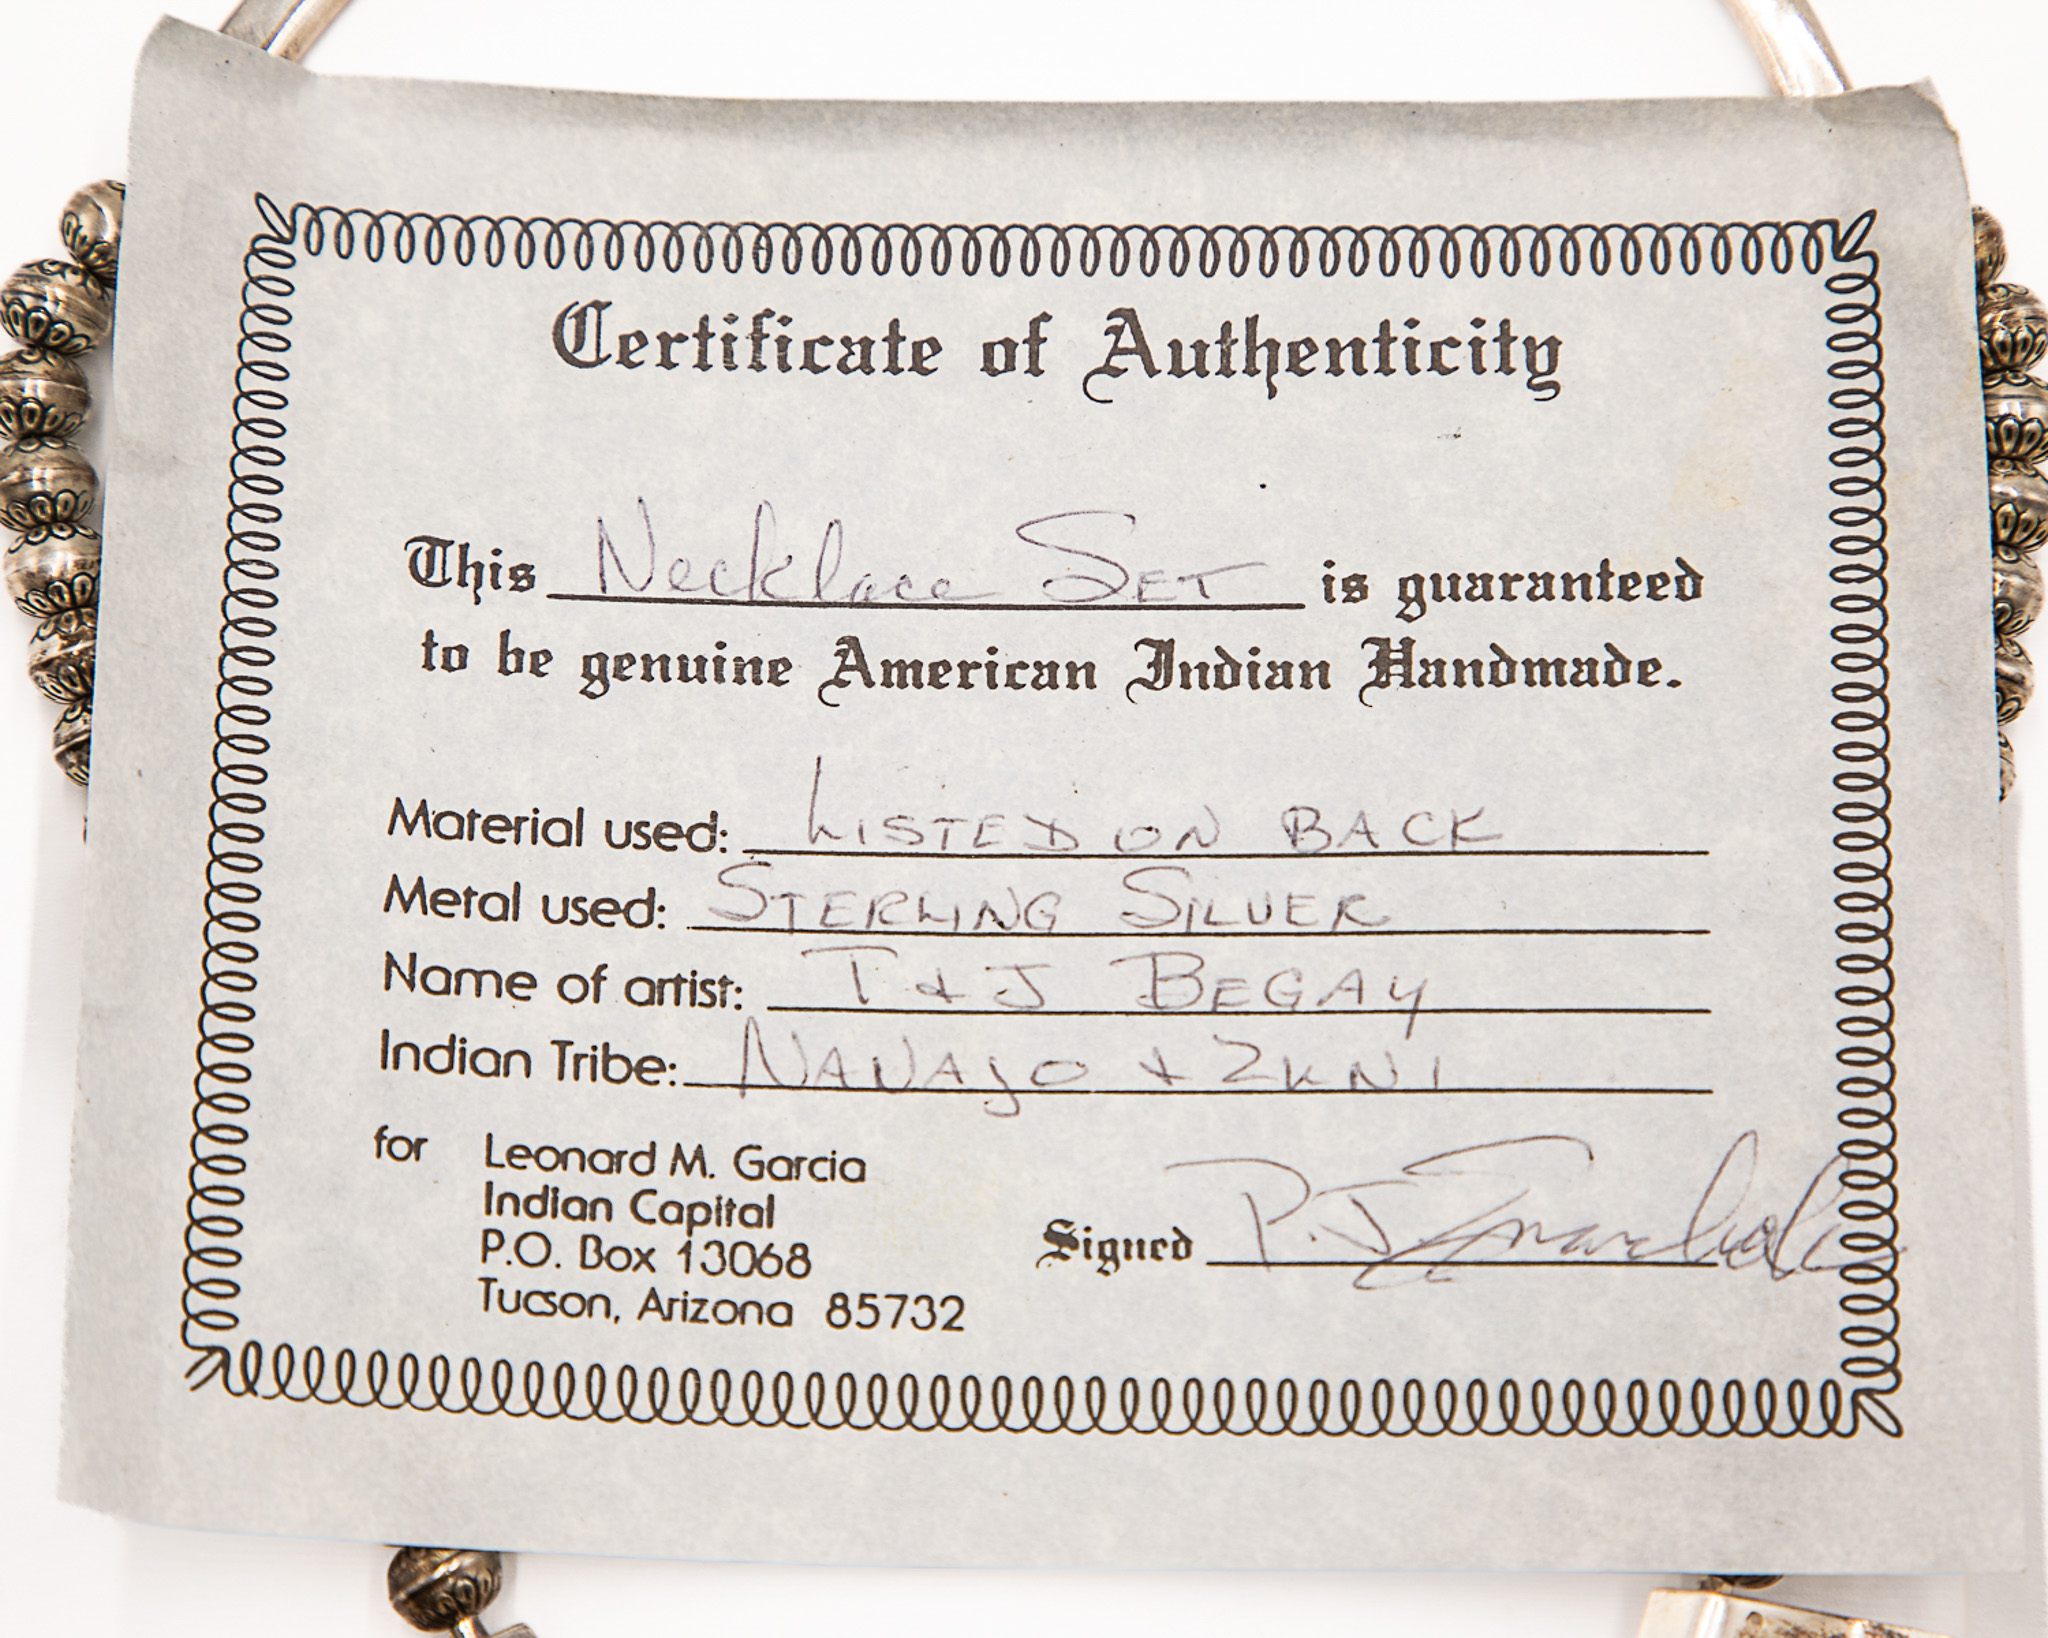 Certificate of Authenticity
This Necklace SET is guaranteed
to be genuine American Indian Handmade.
Material used: LISTED ON BACK
Metal used: STERLING SILVER
Name of artist: T & J BEGAY
Indian Tribe: NAVAJO & ZUNI
for Leonard M. Garcia
Indian Capital
P.O. Box 13068
Tucson, Arizona 85732
Signed P.J.